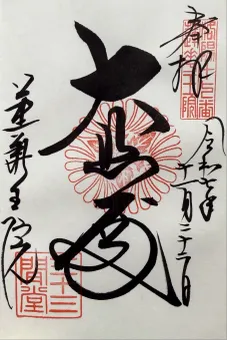 奉拝
令和七年
十一月二十二日
大悲閣
蓮華王院
三十三
間堂